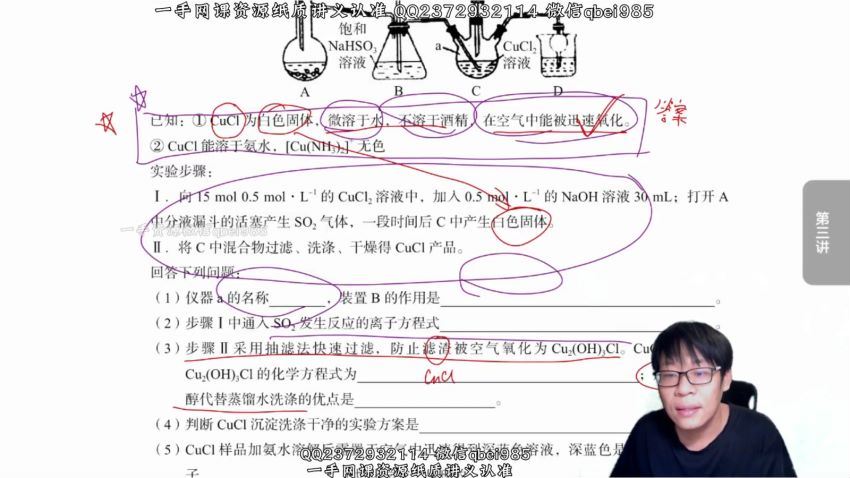 一手网课资源纸质讲义认准 QQ2372932114 微信qbei985
饱和
NaHSO₃
溶液
a
CuCl₂
溶液
A B C D
已知：① CuCl 为白色固体，微溶于水，不溶于酒精，在空气中能被迅速氧化。
答案
② CuCl 能溶于氨水，[Cu(NH₃)₂]⁺ 无色
实验步骤：
Ⅰ．向 15 mol 0.5 mol·L⁻¹ 的 CuCl₂ 溶液中，加入 0.5 mol·L⁻¹ 的 NaOH 溶液 30 mL；打开 A
中分液漏斗的活塞产生 SO₂ 气体，一段时间后 C 中产生白色固体。
Ⅱ．将 C 中混合物过滤、洗涤、干燥得 CuCl 产品。
回答下列问题：
（1）仪器 a 的名称______，装置 B 的作用是______。
（2）步骤Ⅰ中通入 SO₂ 发生反应的离子方程式______
（3）步骤Ⅱ采用抽滤法快速过滤，防止滤渣被空气氧化为 Cu₂(OH)₃Cl。CuC
Cu₂(OH)₃Cl 的化学方程式为______；
CuCl
醇代替蒸馏水洗涤的优点是______。
（4）判断 CuCl 沉淀洗涤干净的实验方案是______
（5）CuCl 样品加氨水溶解后露置于空气中迅速得到深蓝色溶液，深蓝色是
子
第三讲
QQ2372932114 微信qbei985
一手网课资源纸质讲义认准